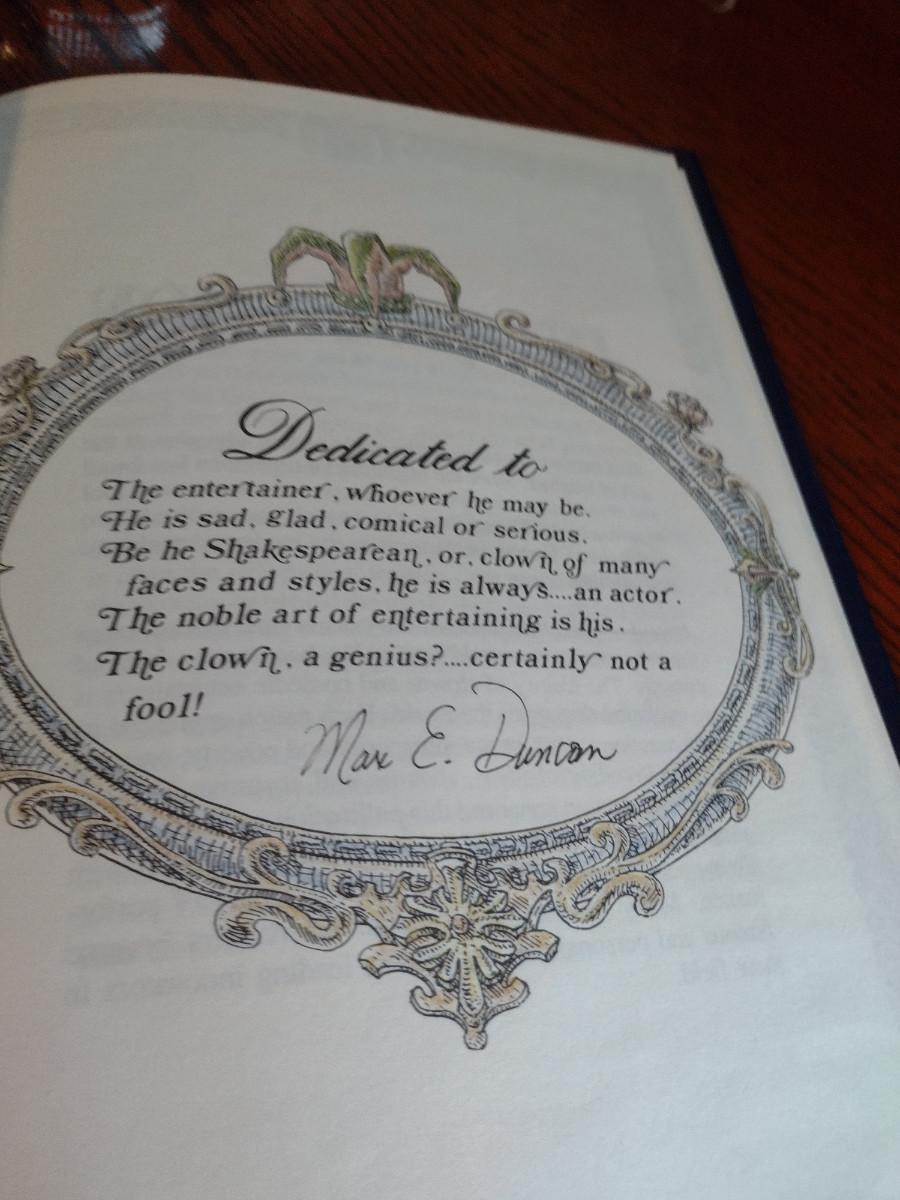 Dedicated to
The entertainer, whoever he may be.
He is sad, glad, comical or serious.
Be he Shakespearean, or, clown of many
faces and styles, he is always....an actor.
The noble art of entertaining is his.
The clown, a genius?....certainly not a
fool!
Max E. Duncan